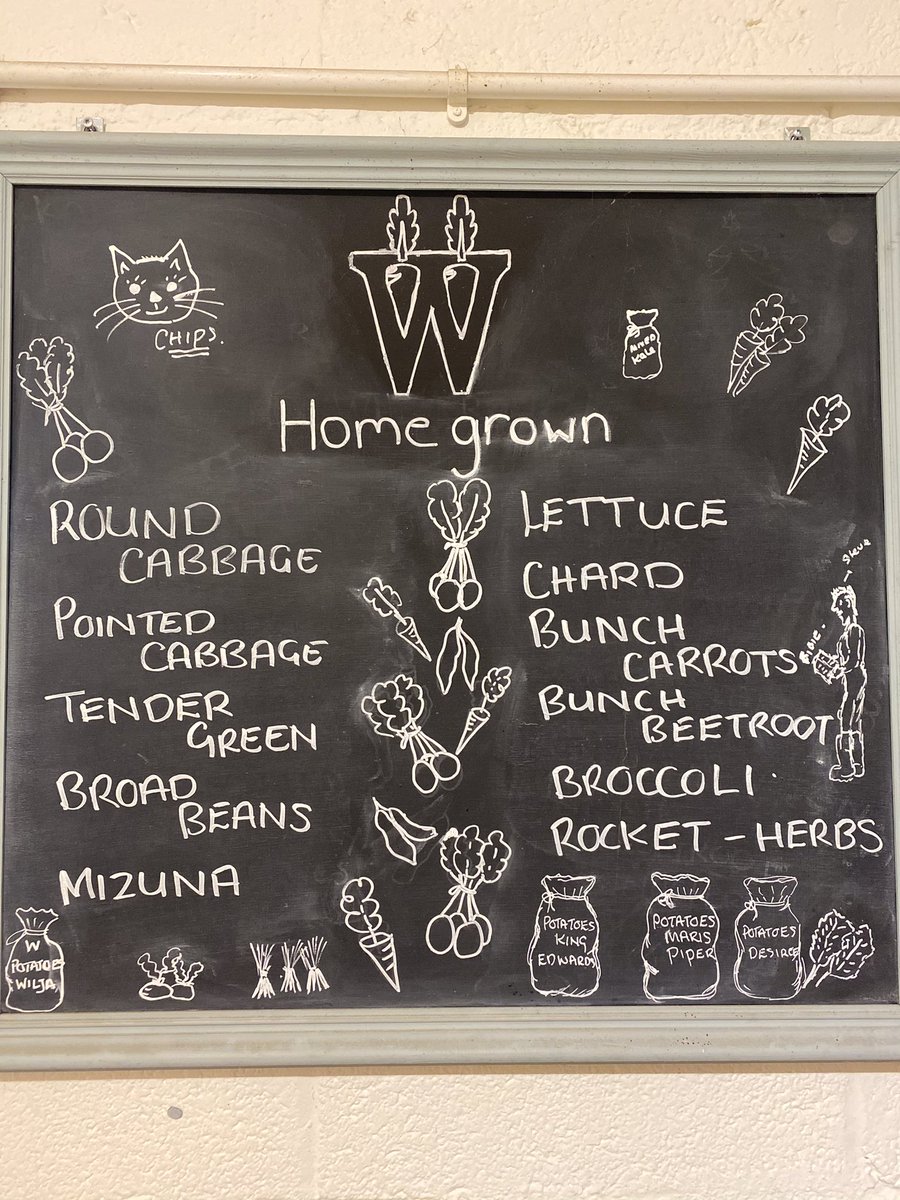 W
CHIPS.
MIXED
Kale
Home grown
ROUND
CABBAGE
POINTED
CABBAGE
TENDER
GREEN
BROAD
BEANS
MIZUNA
LETTUCE
CHARD
BUNCH
CARROTS
BUNCH
BEETROOT
BROCCOLI.
ROCKET - HERBS
Steve
W
POTATOE
WILJA
POTATOES
KING
EDWARDS
POTATOES
MARIS
PIPER
POTATOES
DESIREE